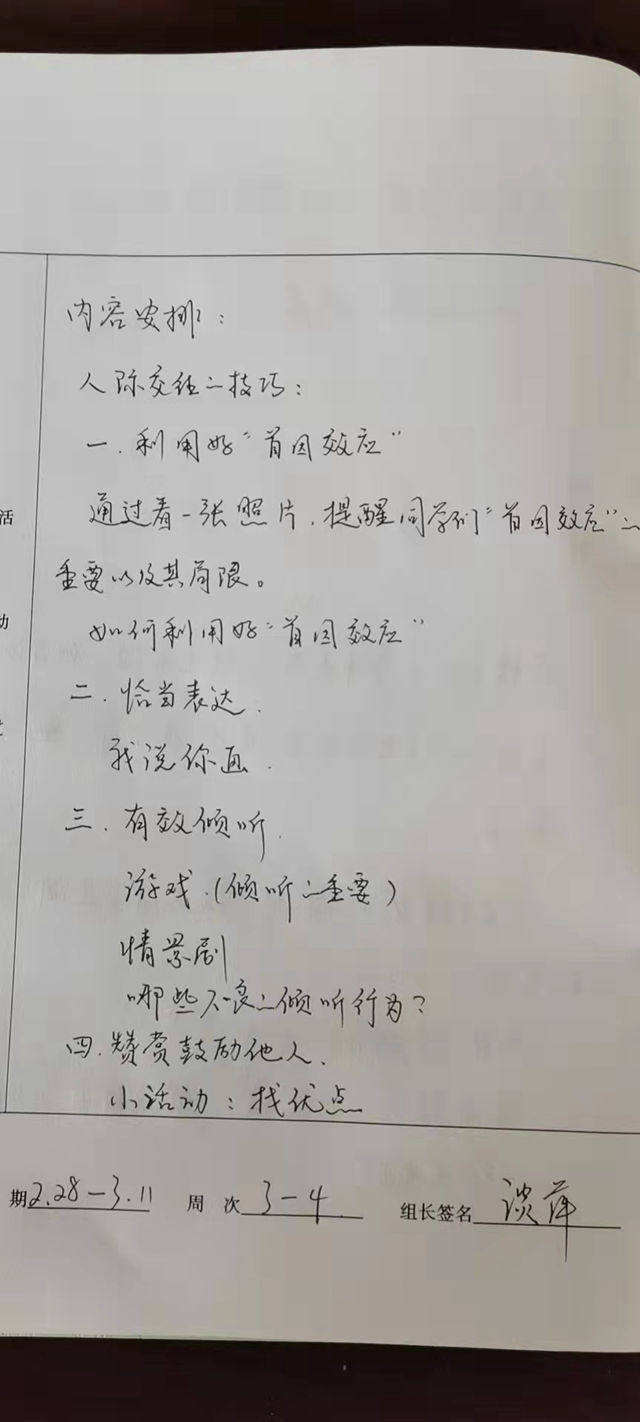 内容安排：
人际交往之技巧：
一.利用好“首因效应”
活
通过看一张照片，提醒同学们“首因效应”之
重要以及其局限。
动
如何利用好“首因效应”
二.恰当表达.
我说你画.
三.有效倾听.
游戏.(倾听之重要)
情景剧
哪些不良之倾听行为?
四.赞赏鼓励他人.
小活动：找优点
期2.28-3.11 周 次3-4 组长签名谈萍